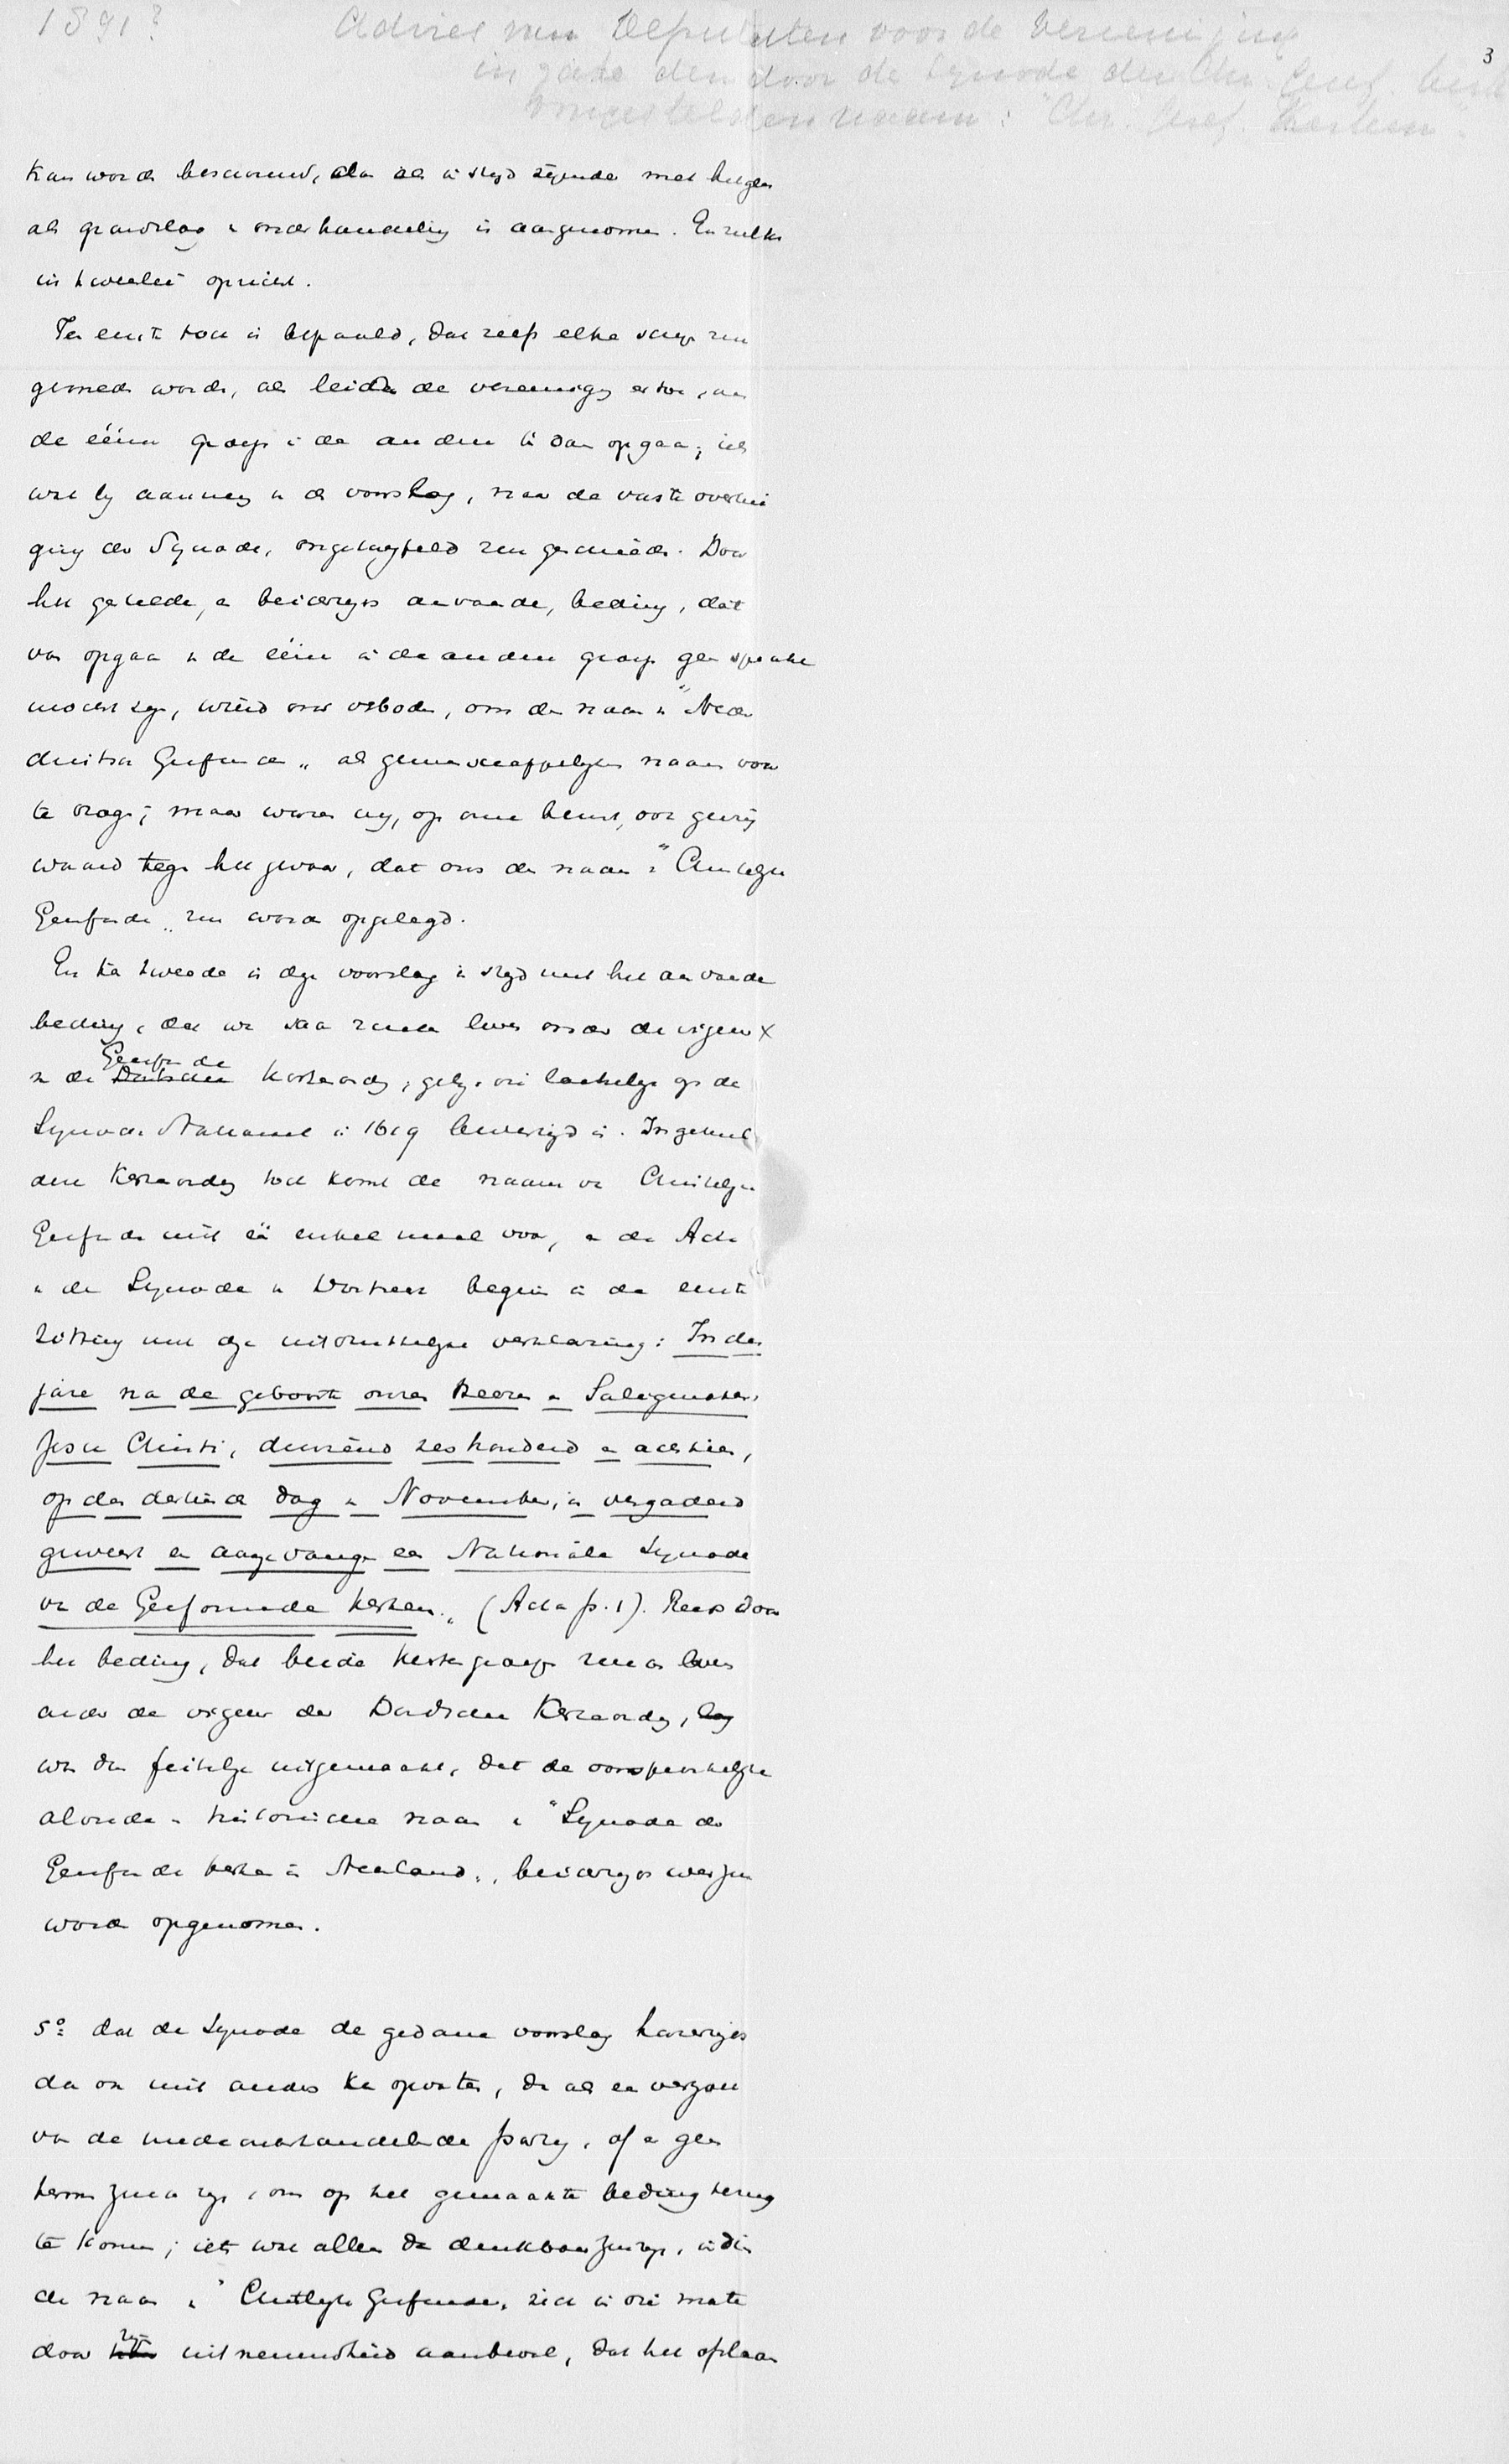 1891?
Adres van Deputaten voor de Vereeniging
in zake den door de Synode der Chr. Geref. Kerk
voorgestelden naam: "Chr. Geref. Kerken".
3
kan worde beschouwd, dan als in stryd zynde met hetgeen
als grondslag v onderhandeling is aangenomen. En zulks
in tweeleï opzicht.
Ten eerste toch is bepaald, dat zelfs elke schyn zou
gemeden worde, als leidde de vereeniging er toe, dat
de ééne groep in de andere in zou opgaa; iets
wat by aanneming v de voorslag, naar de vaste overtui
ging der Synode, ongetwyfeld zou geschiede. Door
het gestelde, en beiderzyds aanvaarde, beding, dat
van opgaa v de ééne in de andere groep geen sprake
mocht zyn, wierd ons verbode, om de naam v "Neder
duitsch Gerefde" als gemeenschappelyke naam voor
te drage; maar ware wy, op onze beurt, ook gevrij
waard tege het gevaar, dat ons de naam v "Christelyke
Gerefde" zou worde opgelegd.
En ten tweede is dye voorslag in stryd met het aanvaarde
beding, dat we saa zoude leve onder de vigeur X
v de Dordtsche Gerefde Kerkenordg, gelyk die laatstelyk op de
Synode Nationaal in 1619 bevestigd is. In geheel
deze Kerkenordg toch komt de naam van Christelyke
Gerefde niet één enkel maal voor, en de Acta
v de Synode v Dordrecht begin in de eerste
zitting met dye uitdrukkelyke verklaring: In den
jare na de geboorte onzes Heeren en Saligmakers
Jesu Christi, duizend zeshonderd en achttien,
op den dertiende dag v November, is vergaderd
geweest en aangevange een Nationale Synode
van de Gereformeerde Kerken." (Acta p. 1). Reeds door
het beding, dat beide kerkegroepe zoude leve
onder de vigeur der Dordtsche Kerkenordg, lag
was dus feitelyk uitgemaakt, dat de oorspronkelyke
aloude en historische naam v "Synode der
Gerefde kerken in Nederland", beiderzyds weer zou
worde opgenomen.
5º dat de Synode de gedane voorslag harerzyds
dan ook niet anders kan opvatten, dan als een verzoek
van de medeonderhandelende party, of er geen
termen zoude zyn, om op het gemaakte beding terug
te komen; iets wat alleen dan denkbaar zou zyn, indien
de naam v "Christlyke Gerefde", zich in die mate
door zyn uitnemendheid aanbeval, dat het opslaan